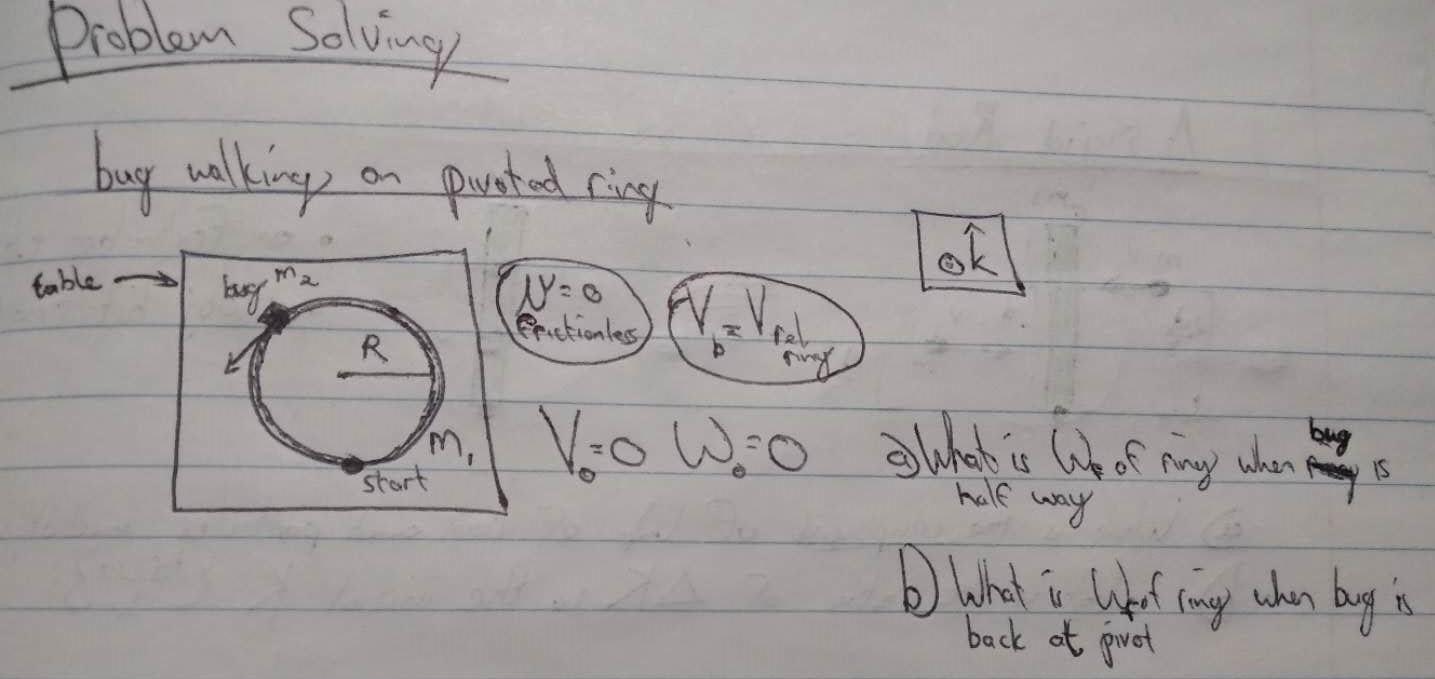 Problem Solving
bug walking on pivoted ring
k
table
bug m₂
μ=0
frictionless
V_b = V_rel ring
R
m₁
start
V₀=0 W₀=0
a) What is W_f of ring when bug is
half way
b) What is W_f of ring when bug is
back at pivot